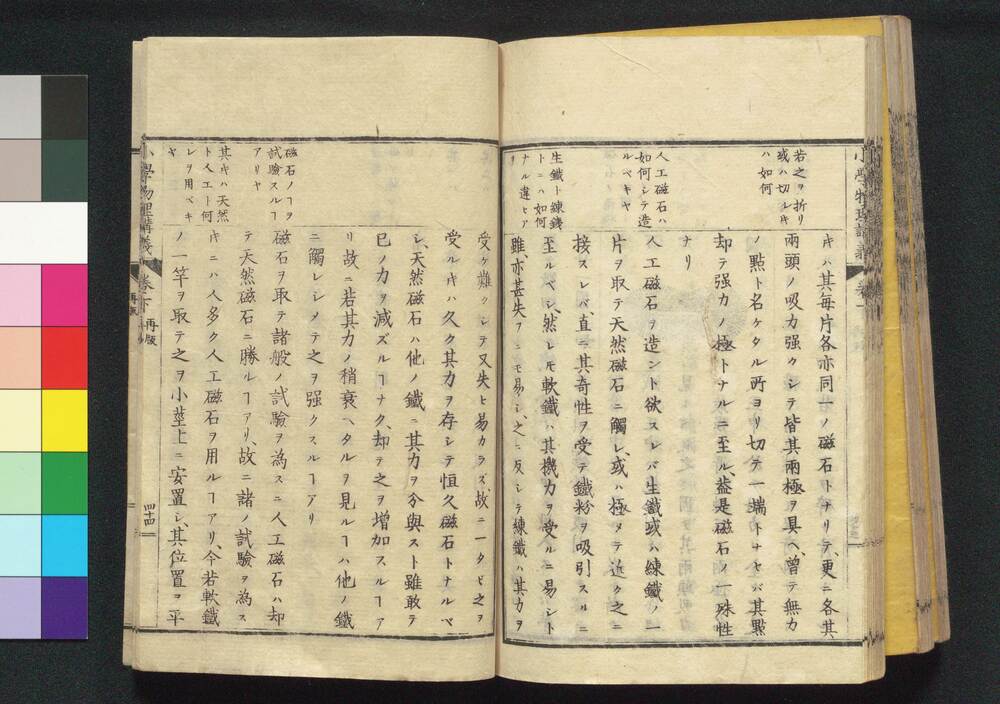 若之ヲ折リ
或ハ切レ𪜈
ハ如何
𪜈ハ其毎片各亦同一ノ磁石トナリテ、更ニ各其
兩頭ノ吸力强クシテ皆其兩極ヲ具ヘ、曾テ無力
ノ點ト名ケタル所ヨリ切テ一端トナセバ其點
却テ强力ノ極トナルニ至ル、蓋是磁石ノ一殊性
ナリ
人工磁石ハ
如何シテ造
ルベキヤ
人工磁石ヲ造ント欲スレバ生鐵或ハ練鐵ノ一
片ヲ取テ天然磁石ニ觸レ、或ハ極メテ近ク之ニ
接スレバ、直ニ其奇性ヲ受テ鐵粉ヲ吸引スルニ
生鐵ト練鐵
トニハ如何
ナル違ヒア
リ
至ルベシ、然レ𪜈軟鐵ハ其機力ヲ受ルニ易シト
雖、亦甚失フニモ易シ、之ニ反シテ練鐵ハ其力ヲ
受ケ難クシテ又失ヒ易カラズ、故ニ一タビ之ヲ
受ル𪜈ハ久ク其力ヲ存シテ恒久磁石トナルベ
シ、天然磁石ハ他ノ鐵ニ其力ヲ分與スト雖敢テ
已ノ力ヲ減ズルヿナク、却テ之ヲ增加スルヿア
リ故ニ若其力ノ稍衰ヘタルヲ見ルヿハ他ノ鐵
ニ觸レシメテ之ヲ强クスルヿアリ
磁石ノヿヲ
試驗スルヿ
アリヤ
磁石ヲ取テ諸般ノ試驗ヲ為スニ人工磁石ハ却
テ天然磁石ニ勝ルヿアリ、故ニ諸ノ試驗ヲ為ス
其𪜈ハ天然
ト人工ト何
レヲ用ベキ
ヤ
𪜈ニハ人多ク人工磁石ヲ用ルヿアリ、今若軟鐵
ノ一竿ヲ取テ之ヲ小莖上ニ安置シ、其位置ヲ平
小學物理講義
卷下
再版
四十四